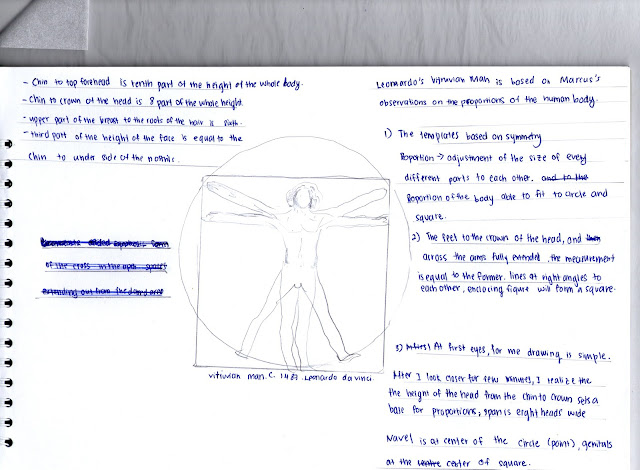 - Chin to top forehead is tenth part of the height of the whole body.
- Chin to crown of the head is 8 part of the whole height.
- upper part of the breast to the roots of the hair is sixth.
- third part of the height of the face is equal to the
chin to under side of the nostrils.
of the cross in the open spaces
extending out from the
vitruvian man. C. 1487. Leonardo da vinci.
Leornardo's Vitruvian Man is based on Marcus's
observations on the proportions of the human body.
1) The templates based on symmetry
Roportion → adjustment of the size of every
different parts to each other. and to the
Roportion of the body able to fit to circle and
square.
2) The feet to the crown of the head, and then
across the arms fully extended, the measurement
is equal to the former. lines at right angles to
each other, enclosing figure will form a square.
3) At first eyes, for me drawing is simple.
After I look closer for few minutes, I realize the
the height of the head from the chin to crown sets a
base for proportions; span is eight heads wide
Navel is at center of the circle (point), genitals
at the centre center of square.